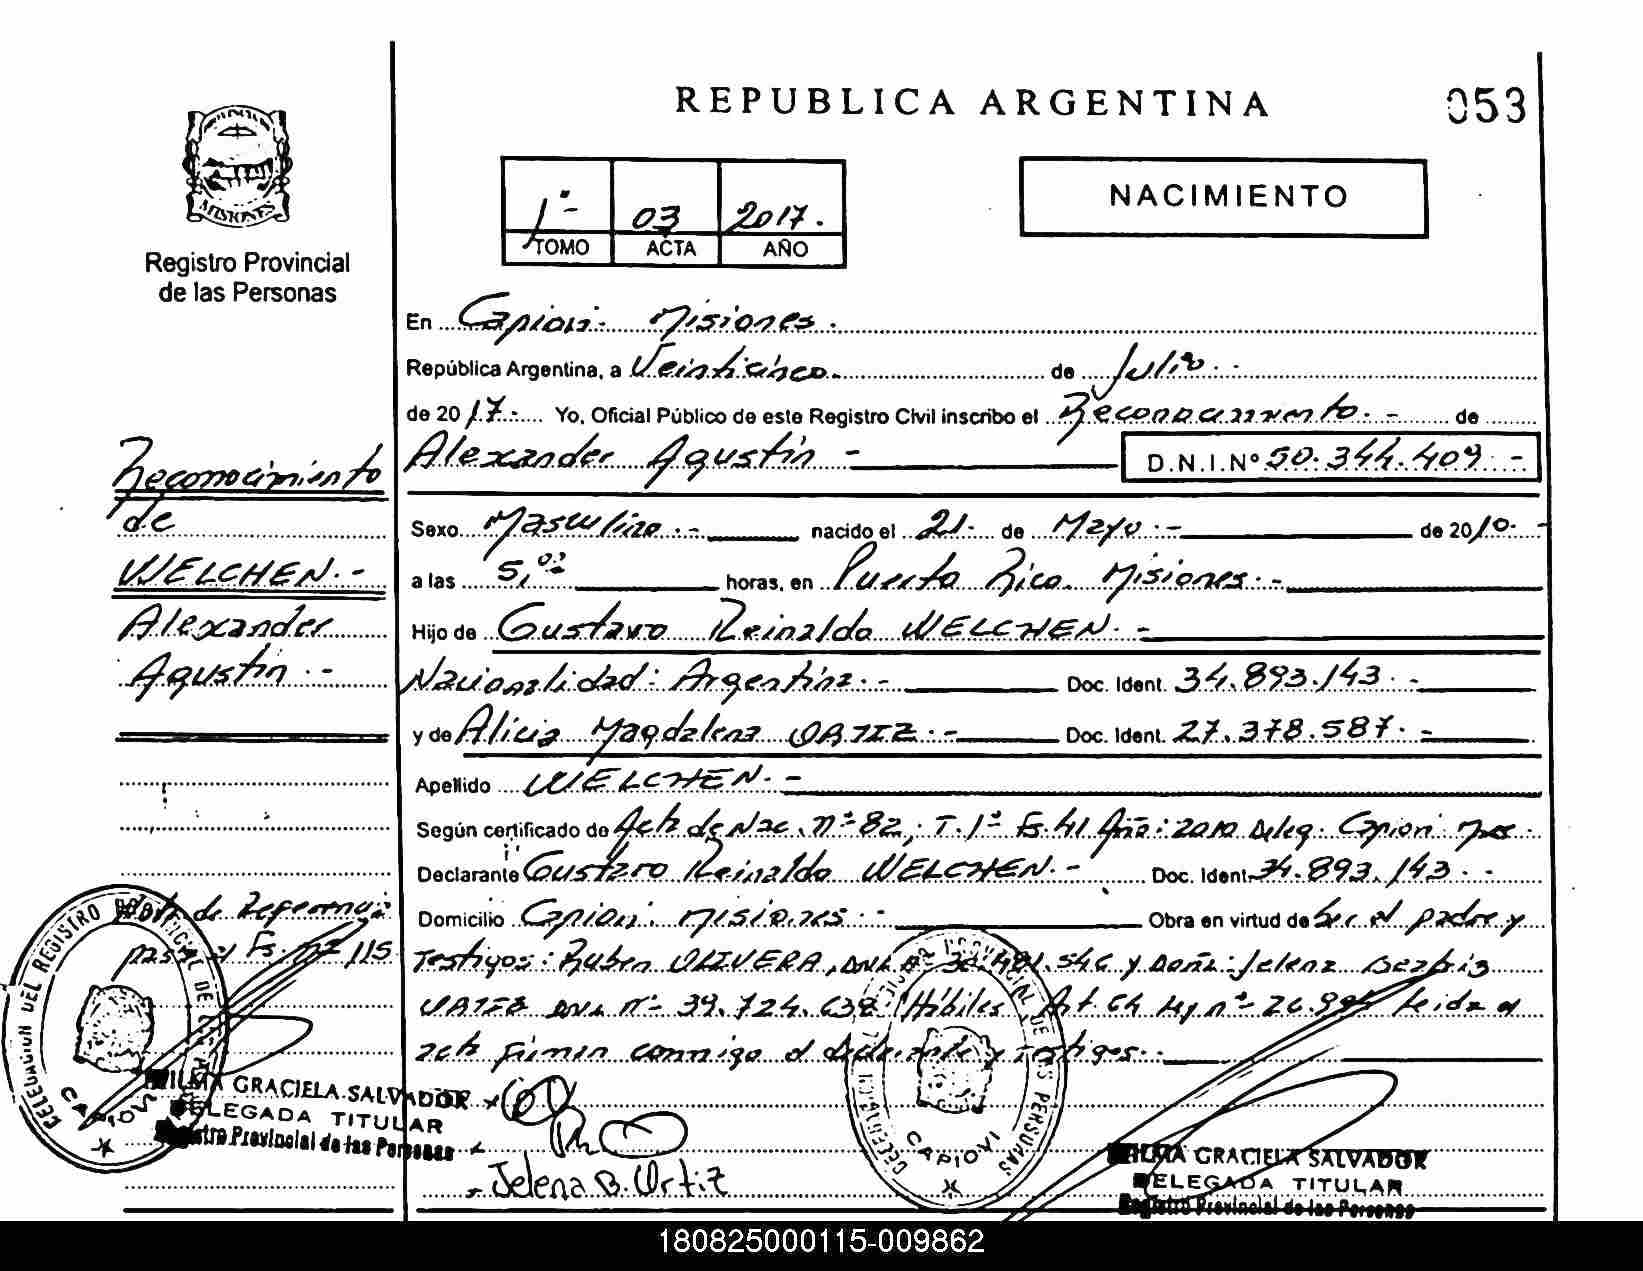 REPUBLICA ARGENTINA
053
MISIONES
Registro Provincial
de las Personas
1º- 03 2017.
TOMO ACTA AÑO
NACIMIENTO
En Capiovi - Misiones.
República Argentina, a Veinticinco. de Julio. -
de 2017.- Yo, Oficial Público de este Registro Civil inscribo el Reconocimiento. - de
Alexander Agustin - D.N.I.Nº 50.344.409.-
Sexo Masculino.- nacido el 21- de Mayo.- de 2010.-
a las 5,00 horas, en Puerto Rico. Misiones.-
Hijo de Gustavo Reinaldo WELCHEN.-
Nacionalidad: Argentina.- Doc. Ident. 34.893.143.-
y de Alicia Magdalena ORTIZ.- Doc. Ident. 27.378.587.-
Apellido WELCHEN.-
Según certificado de Acta de Nac. nº 82, T. 1º Fº 41 Año: 2010 Deleg. Capiovi
Declarante Gustavo Reinaldo WELCHEN.- Doc. Ident. 34.893.143.-
Domicilio Capiovi. Misiones.- Obra en virtud de Ser el padre y
Testigos: Ruben OLIVERA, y Doña: Jelena Beatriz
ORTIZ DNI nº 39.724.638 Hábiles, Art 64 Ley nº leida el
acta firman conmigo el declarante y testigos.-
Jelena B. Ortiz
Reconocimiento
de
WELCHEN.-
Alexander
Agustin.-
Fº nº 115
DELEGACION DEL REGISTRO PROVINCIAL DE LAS PERSONAS
CAPIOVI
GRACIELA SALVADOR
DELEGADA TITULAR
Registro Provincial de las Personas
DELEGACION DEL REGISTRO PROVINCIAL DE LAS PERSONAS
CAPIOVI
GRACIELA SALVADOR
DELEGADA TITULAR
Registro Provincial de las Personas
180825000115-009862